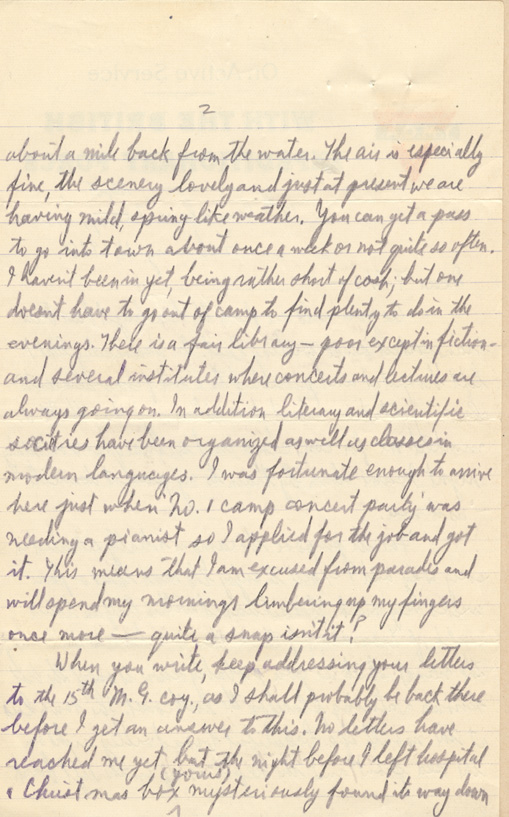 2
about a mile back from the water. The air is especially
fine, the scenery lovely and just at present we are
having mild, spring-like weather. You can get a pass
to go into town about once a week or not quite so often.
I haven't been in yet, being rather short of cash; but one
doesn't have to go out of camp to find plenty to do in the
evenings. There is a fair library — poor except in fiction -
and several institutes where concerts and lectures are
always going on. In addition literary and scientific
societies have been organized as well as classes in
modern languages. I was fortunate enough to arrive
here just when 'No. 1 camp concert party' was
needing a pianist so I applied for the job and got
it. This means that I am excused from parades and
will spend my mornings limbering up my fingers
once more — quite a snap isn't it?
When you write, keep addressing your letters
to the 15th M.G. coy., as I shall probably be back there
before I get an answer to this. No letters have
reached me yet, but the night before I left hospital
a Christmas box (yours) mysteriously found its way down